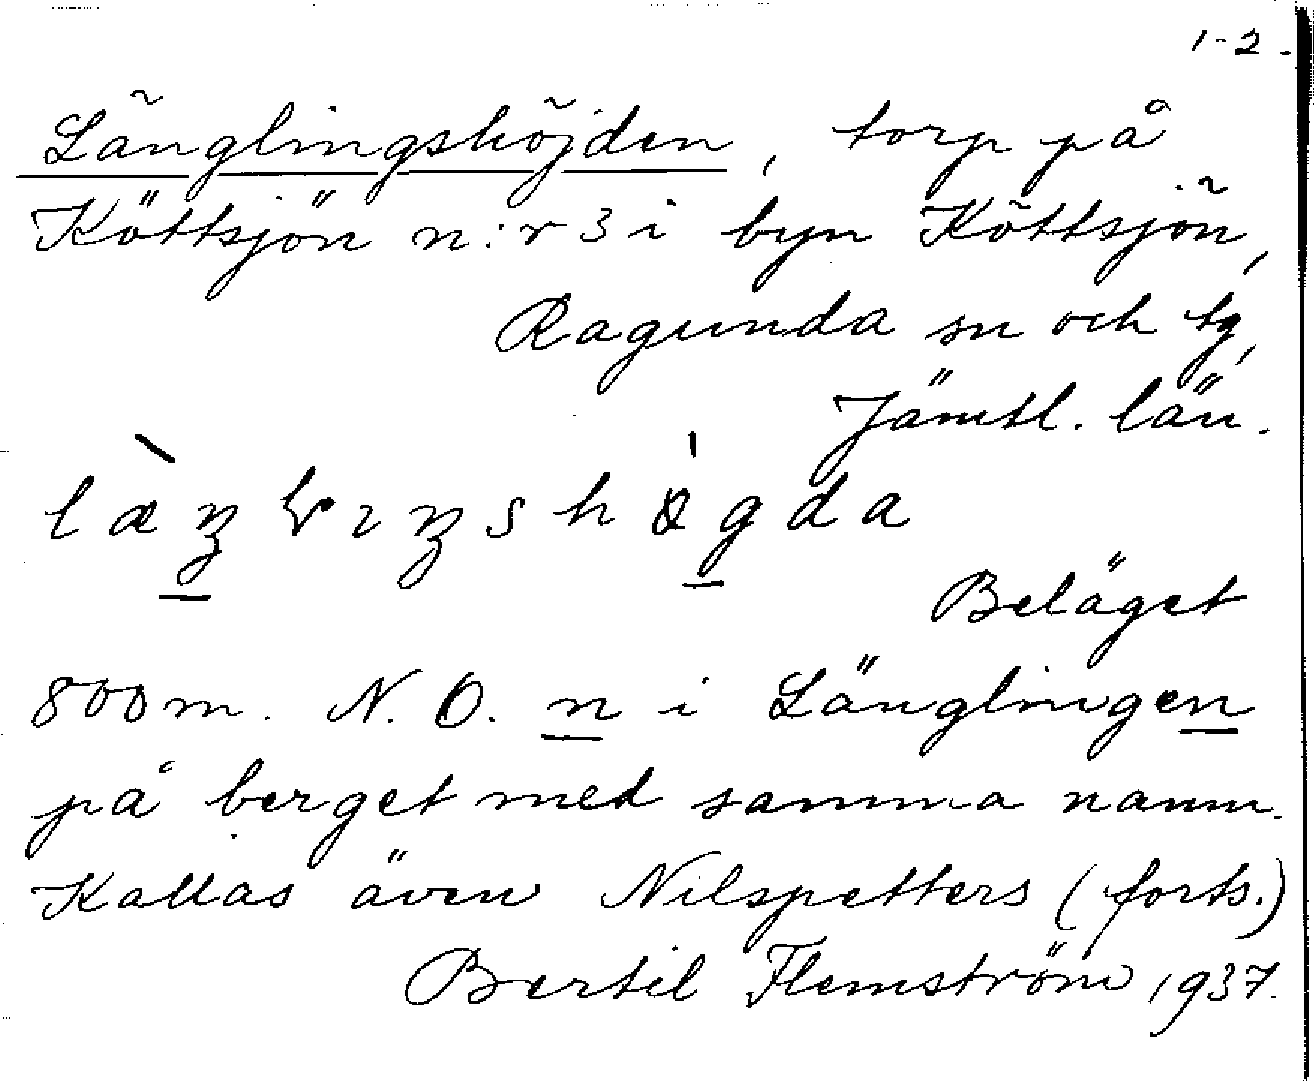 1-2.
Länglingshöjden, torp på
Köttsjön n:r 3 i byn Köttsjön,
Ragunda sn och tg,
Jämtl. län.
Beläget
800 m. N.O. n i Länglingen
på berget med samma namn.
Kallas även Nilspetters (forts.)
Bertil Flemström 1937.